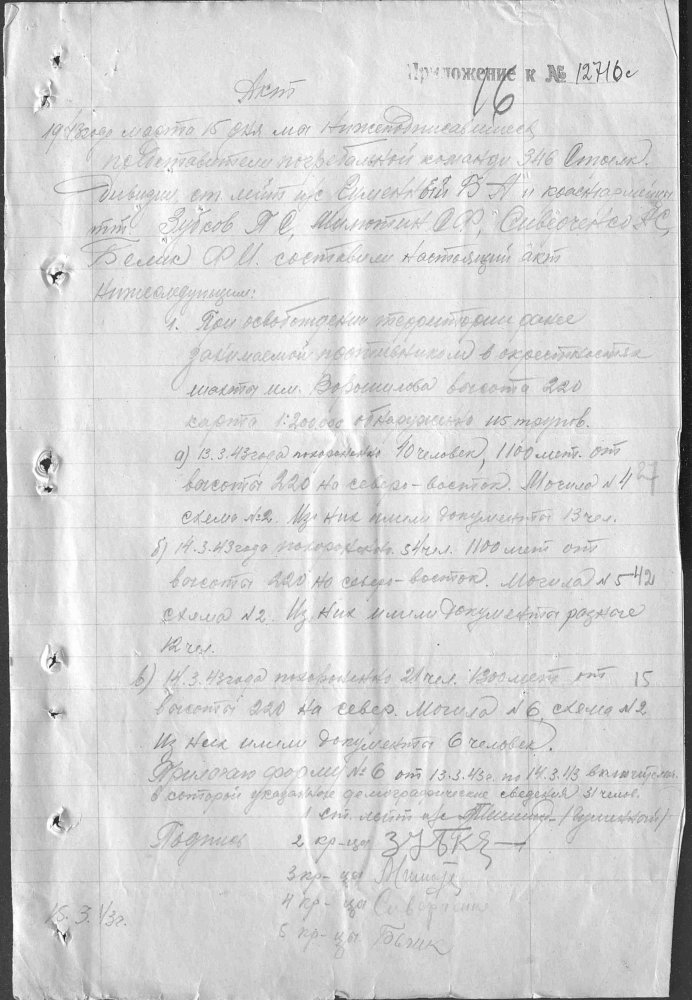 Приложение к № 12716с
16
Акт
1943 года марта 15 дня мы нижеподписавшиеся
представители погребальной команды 346 Стрелк.
дивизии, ст. лейт и/с Б А и красноармейцы
т.т. Зубков П С, Милютин С Ф, Сивоченко
Белик Ф И. составили настоящий акт
нижеследующим:
1. При освобождении территории ранее
занимаемой противником в окрестностях
шахты им. Ворошилова высота 220
карта 1:200000 обнаружено 115 трупов.
а) 13.3.43 года похоронено 40 человек, 1100 мет. от
высоты 220 на северо-восток. Могила N 4 27
схема №2. Из них имели документы 13 чел.
б) 14.3.43 года похоронено 54 чел. 1100 мет от
высоты 220 на северо-восток. Могила N 5 42
схема N 2. Из них имели документы разного
12 чел.
в) 14.3.43 года похоронено 21 чел. 1300 мет от 15
высоты 220 на север. Могила N 6, схема N 2
Из них имели документы 6 человек.
Прилагаю форму № 6 от 13.3.43г. по 14.3.43 включительно
в которой указанные демографические сведения 31 челов.
1 ст. лейт и/с
Подпись 2 кр-цы
3 кр-цы
4 кр-цы
15.3.43г.
5 кр-цы Белик